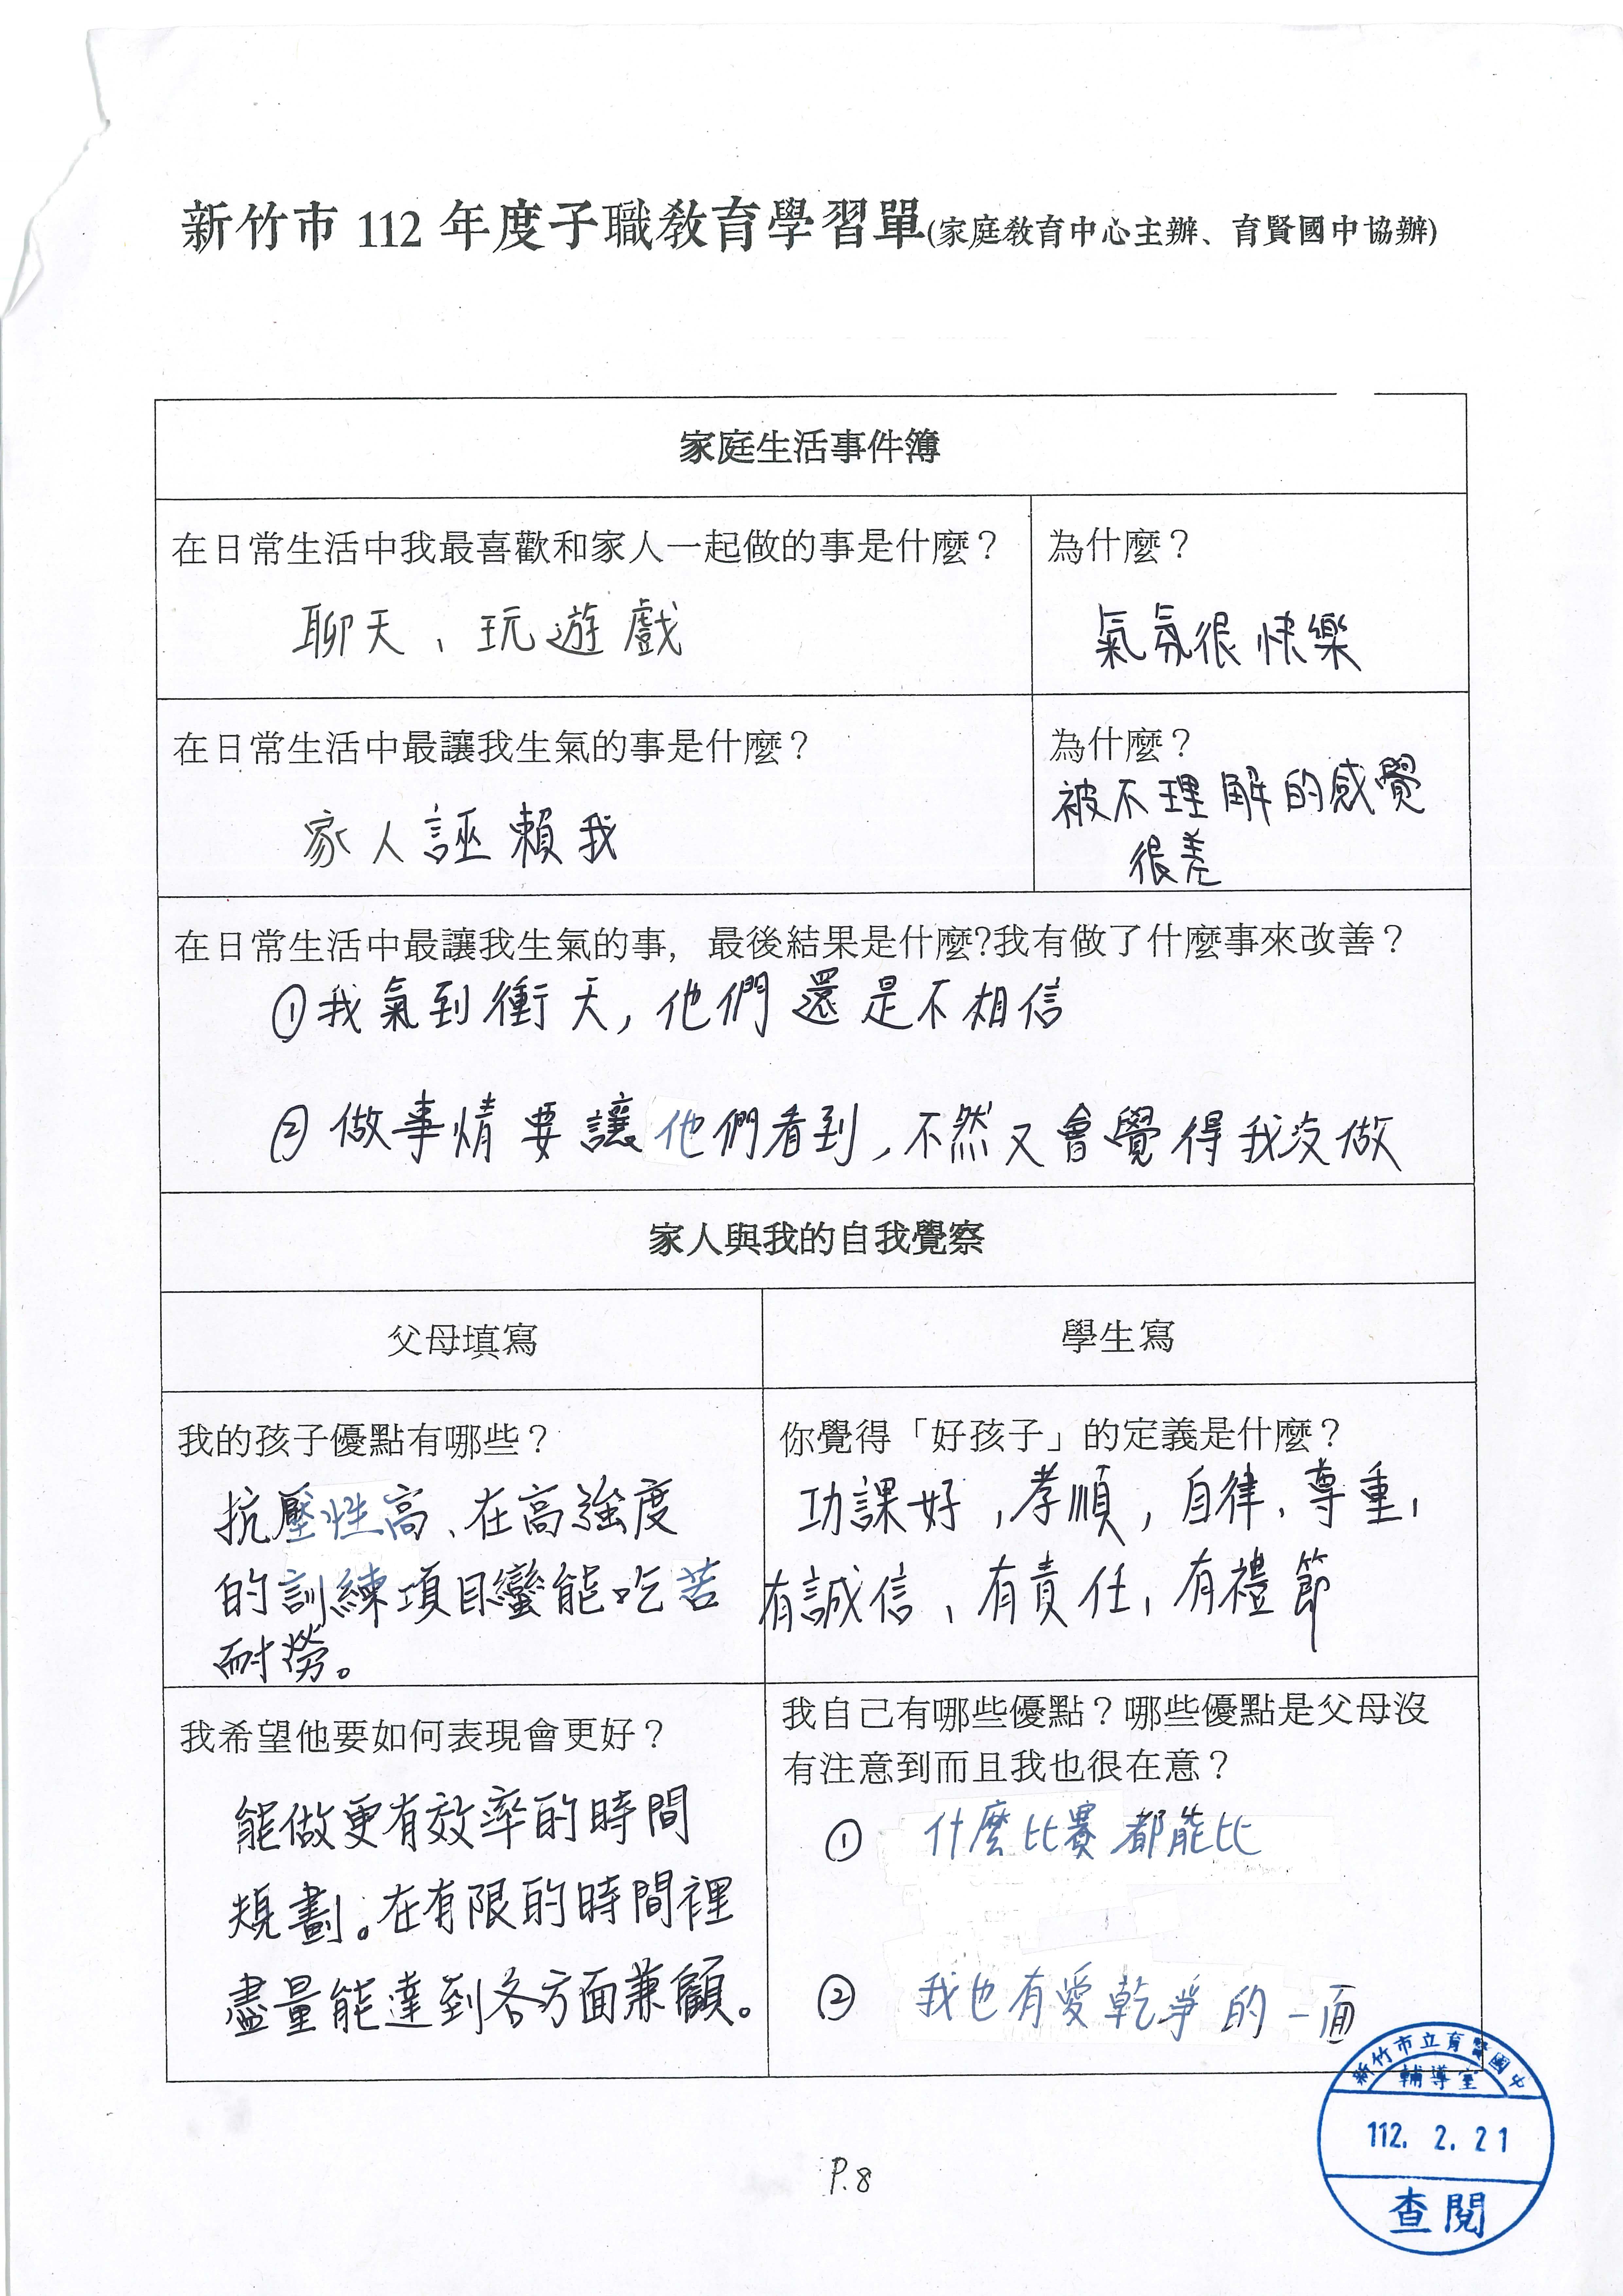 新竹市 112 年度子職教育學習單(家庭教育中心主辦、育賢國中協辦)
家庭生活事件簿
在日常生活中我最喜歡和家人一起做的事是什麼？
聊天、玩遊戲
為什麼？
氣氛很快樂
在日常生活中最讓我生氣的事是什麼？
家人誣賴我
為什麼？
被不理解的感覺
很差
在日常生活中最讓我生氣的事，最後結果是什麼?我有做了什麼事來改善？
①我氣到衝天,他們還是不相信
②做事情要讓他們看到,不然又會覺得我沒做
家人與我的自我覺察
父母填寫
學生寫
我的孩子優點有哪些？
抗壓性高、在高強度
的訓練項目蠻能吃苦
耐勞。
你覺得「好孩子」的定義是什麼？
功課好,孝順,自律、尊重、
有誠信、有責任、有禮節
我希望他要如何表現會更好？
能做更有效率的時間
規劃。在有限的時間裡
盡量能達到各方面兼顧。
我自己有哪些優點？哪些優點是父母沒
有注意到而且我也很在意？
① 什麼比賽都能比
② 我也有愛乾淨的一面
新竹市立育賢國中
輔導室
112. 2. 21
查閱
P.8